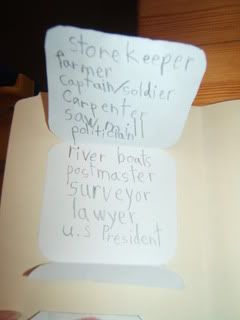 storekeeper
farmer
captain/soldier
carpenter
sawmill
politician
river boats
postmaster
surveyor
lawyer
U.S President